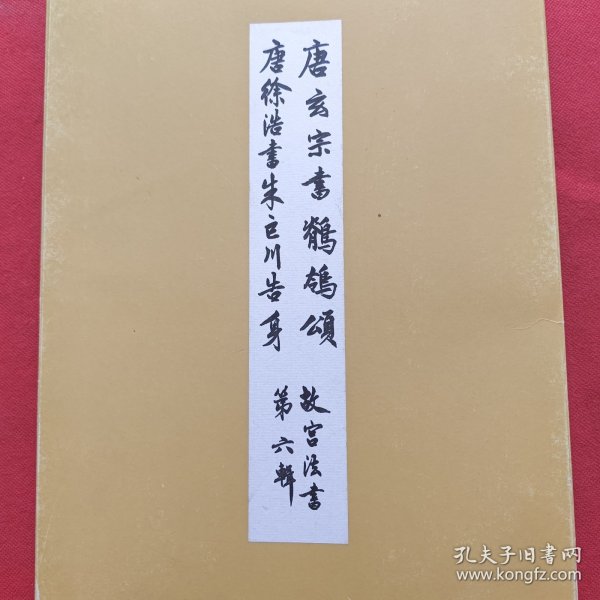 唐玄宗書鶺鴒頌
唐徐浩書朱巨川告身
故宮法書
第六輯
孔夫子旧書网
www.kongfz.com